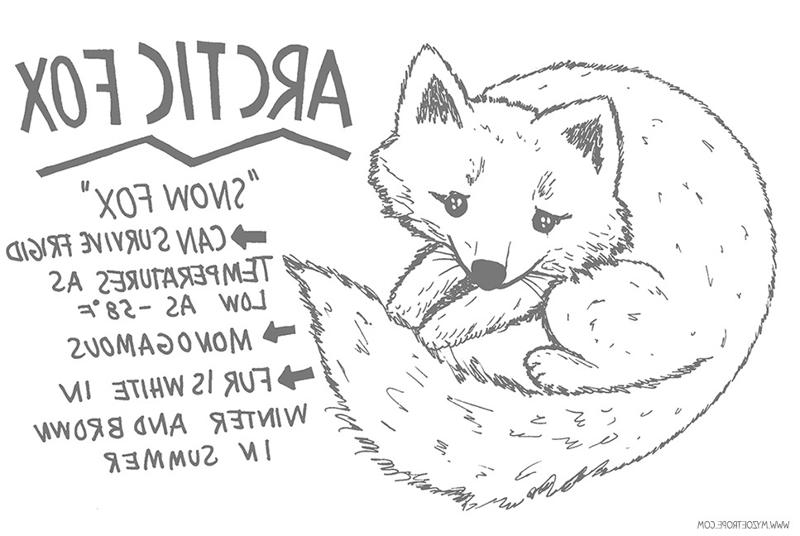 ARCTIC FOX
"SNOW FOX"
CAN SURVIVE FRIGID
TEMPERATURES AS
LOW AS -58°F
MONOGAMOUS
FUR IS WHITE IN
WINTER AND BROWN
IN SUMMER
WWW.MYZOETROPE.COM